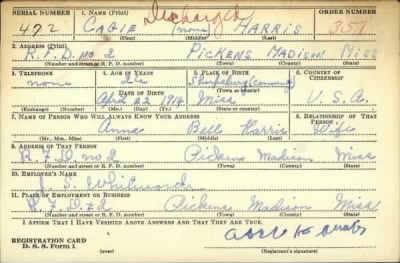 SERIAL NUMBER 1. NAME (Print) Discharged ORDER NUMBER
472 CAGIE (none) HARRIS 357
(First) (Middle) (Last)
2. ADDRESS (Print)
R.F.D. No 2 PICKENS MADISON MISS
(Number and street or R. F. D. number) (Town) (County) (State)
3. TELEPHONE 4. AGE IN YEARS 5. PLACE OF BIRTH 6. COUNTRY OF CITIZENSHIP
none
DATE OF BIRTH (Town or county)
April 22 Miss U.S.A.
(Exchange) (Number) (Mo.) (Day) (Yr.) (State or country)
7. NAME OF PERSON WHO WILL ALWAYS KNOW YOUR ADDRESS 8. RELATIONSHIP OF THAT PERSON
Anna Bell Harris Wife
(Mr., Mrs., Miss) (First) (Middle) (Last)
9. ADDRESS OF THAT PERSON
R.F.D. no 2 Pickens Madison Miss
(Number and street or R. F. D. number) (Town) (County) (State)
10. EMPLOYER'S NAME
J. S.
11. PLACE OF EMPLOYMENT OR BUSINESS
R.F.D. # 2 Pickens Madison Miss
(Number and street or R. F. D. number) (Town) (County) (State)
I AFFIRM THAT I HAVE VERIFIED ABOVE ANSWERS AND THAT THEY ARE TRUE.
REGISTRATION CARD
D. S. S. Form 1 (over) (Registrant's signature)